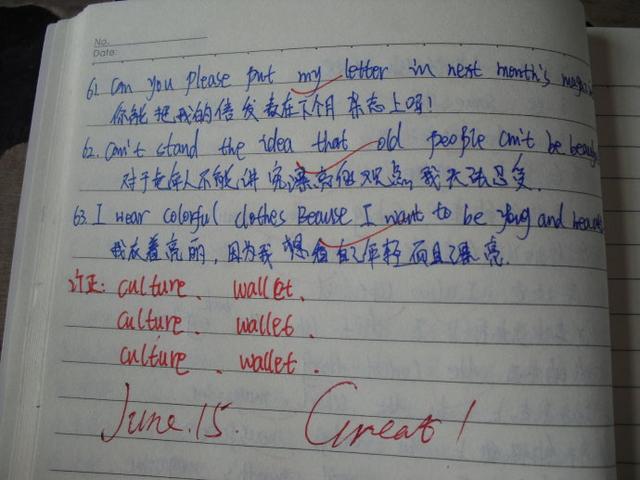 No.
Date:
61. Can you please put my letter in next month's
你能把我的信发表在下个月杂志上吗!
62. Can't stand the idea that old people can't be
对于老年人不能讲究漂亮的观点,我无法忍受.
63. I wear colorful clothes Because I want to be young and
我放着亮丽,因为我想自己年轻而且漂亮.
订正: culture. wallet.
culture. wallet.
culture. wallet.
June.15. Great!